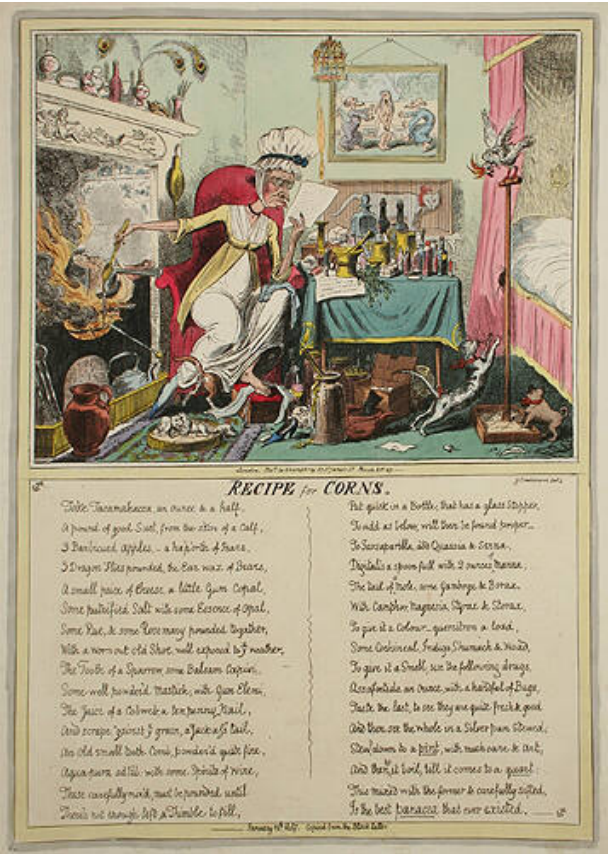 RECIPE for CORNS.
Take Tacamahacca, an ounce & a half,
A pound of good Suet, from the skin of a Calf,
3 Barbicued Apples, a hap'orth of Pears,
3 Dragon Flies pounded, the Ear wax of Bears,
A small peice of Cheese, a little Gum Copal,
Some putrified Salt with some Essence of Opal,
Some Rue, & some Rosemary pounded together,
With a worn out old Shoe, well exposed to ye weather,
The Tooth of a Sparrow, some Balsam Capivi,
Some well powder'd Mastick, with Gum Elemi,
The Juice of a Cobweb a ten penny Nail,
And scrape 'gainst ye grain, a Jack-a-ſs tail,
An old small tooth Comb, powder'd quite fine,
Aqua pura ad lib: with some Spirits of Wine,
These carefully mix'd, must be pounded until
There's not enough left a Thimble to fill,
Put quick in a Bottle, that has a glass Stopper,
To add as below, will then be found proper
To Sarsaparilla, add Quassia & Senna,
Digitalis a spoon full with 2 ounces Manna,
The tail of Mole, some Gamboge & Borax
With Camphor, Magnesia, Styrax & Storax,
To give it a Colour quercitron a load,
Some Cochineal, Indigo, Shumack & Woad,
To give it a Smell, use the following drugs,
Assafoetida an Ounce, with a handful of Bugs,
Taste the last, to see they are quite fresh & good
And then see the whole in a Silver pan Stewed,
Stew down to a pint, with much care & Art,
And then let it boil, till it comes to a quart:
This mixed with the former & carefully sifted,
Is the best panacea that ever existed.
Copied from the Black Letter